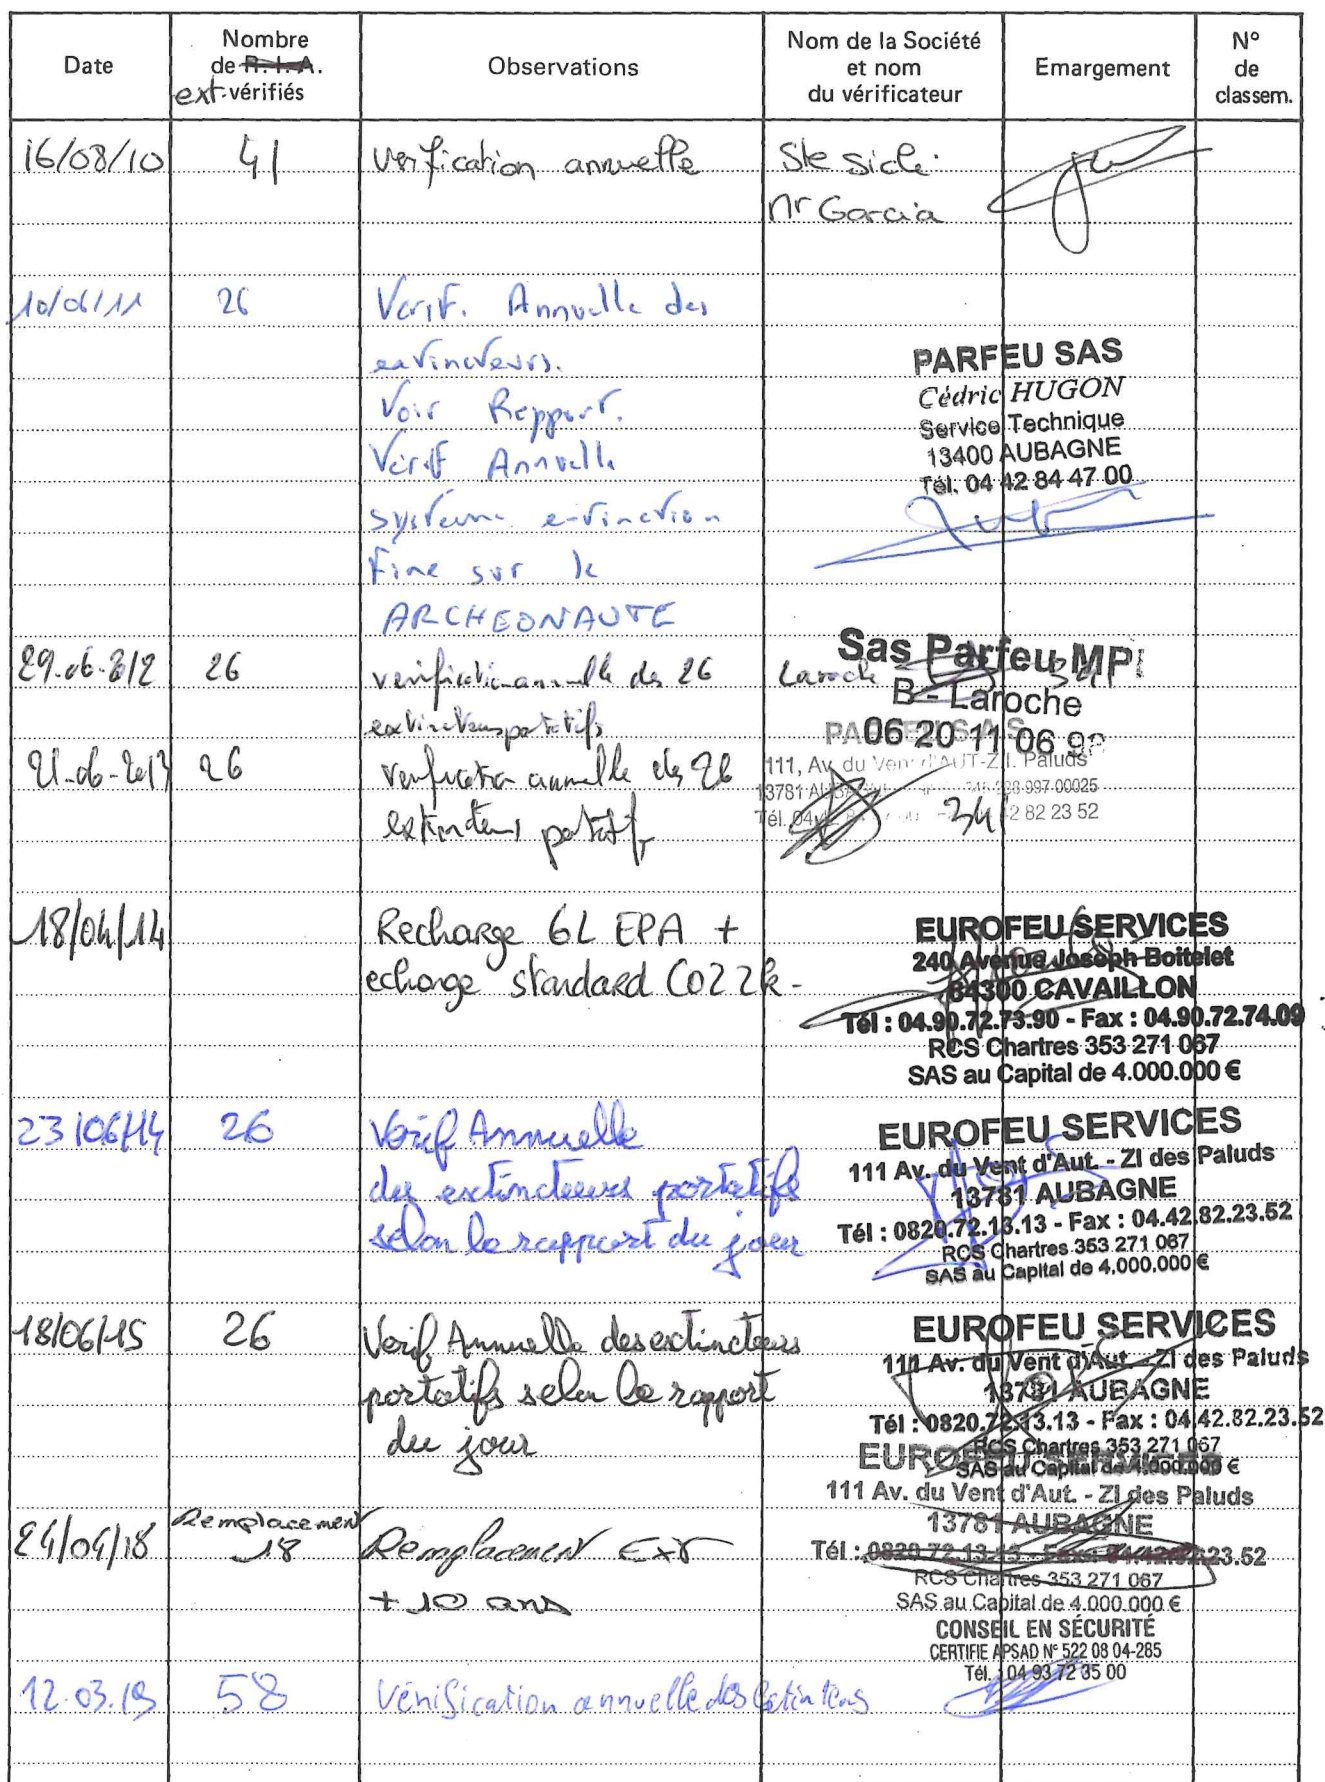 Date
Nombre
de R.I.A.
ext. vérifiés
Observations
Nom de la Société
et nom
du vérificateur
Emargement
N°
de
classem.
16/08/10 41 verification annuelle Ste Sicli
Mr Garcia
10/06/11 26 Verif. Annuelle des
extincteurs.
Voir Rapport.
Verif Annuelle
système extinction
Fixe sur le
ARCHEONAUTE
PARFEU SAS
Cédric HUGON
Service Technique
13400 AUBAGNE
Tél. 04 42 84 47 00
29.06.2012 26 verification annuelle des 26 Laroche
extincteurs portatifs
Sas Parfeu MPI
B - Laroche
06 20 11 06 98
21-06-2013 26 verification annuelle des 26
extincteurs portatifs
PARFEU S.A.S
111, Av. du Vent d'AUT-Z.I. Paluds
13781 AUBAGNE
34
18/04/14 Recharge 6L EPA +
echange standard CO2 2k-
EUROFEU SERVICES
240 Avenue Joseph Boitelet
84300 CAVAILLON
Tél : 04.90.72.73.90 - Fax : 04.90.72.74.09
RCS Chartres 353 271 067
SAS au Capital de 4.000.000 €
23/06/14 26 Verif Annuelle
des extincteurs portatifs
selon le rapport du jour
EUROFEU SERVICES
111 Av. du Vent d'Aut. - ZI des Paluds
13781 AUBAGNE
Tél : 0820.72.13.13 - Fax : 04.42.82.23.52
RCS Chartres 353 271 067
SAS au Capital de 4.000.000 €
18/06/15 26 Verif Annuelle des extincteurs
portatifs selon le rapport
du jour
EUROFEU SERVICES
111 Av. du Vent d'Aut. - ZI des Paluds
13781 AUBAGNE
Tél : 0820.72.13.13 - Fax : 04.42.82.23.52
RCS Chartres 353 271 067
SAS au Capital de 4.000.000 €
24/04/18 Remplacement
18 Remplacement Ext
+ 10 ans
EUROFEU SERVICES
111 Av. du Vent d'Aut. - ZI des Paluds
13781 AUBAGNE
Tél : 0820.72.13.13 - Fax : 04.42.82.23.52
RCS Chartres 353 271 067
SAS au Capital de 4.000.000 €
CONSEIL EN SÉCURITÉ
CERTIFIE APSAD N° 522 08 04-285
Tél. : 04 93 72 35 00
12.03.19 58 Vérification annuelle des extincteurs